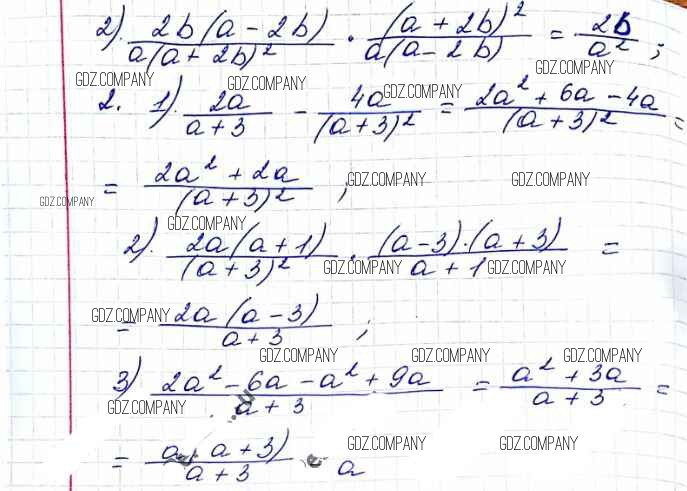 2). 2b(a - 2b) / a(a + 2b)² · (a + 2b)² / a(a - 2b) = 2b / a² ;
GDZ.COMPANY GDZ.COMPANY GDZ.COMPANY
2. 1). 2a / a + 3 - 4a / (a + 3)² = 2a² + 6a - 4a / (a + 3)² =
GDZ.COMPANY
= 2a² + 2a / (a + 3)² ;
GDZ.COMPANY GDZ.COMPANY GDZ.COMPANY
GDZ.COMPANY
2). 2a(a + 1) / (a + 3)² · (a - 3)·(a + 3) / a + 1 =
GDZ.COMPANY GDZ.COMPANY
= 2a(a - 3) / a + 3 ;
GDZ.COMPANY
GDZ.COMPANY GDZ.COMPANY GDZ.COMPANY
3) 2a² - 6a - a² + 9a / a + 3 = a² + 3a / a + 3 =
GDZ.COMPANY
= a a + 3) / a + 3 = a
GDZ.COMPANY GDZ.COMPANY